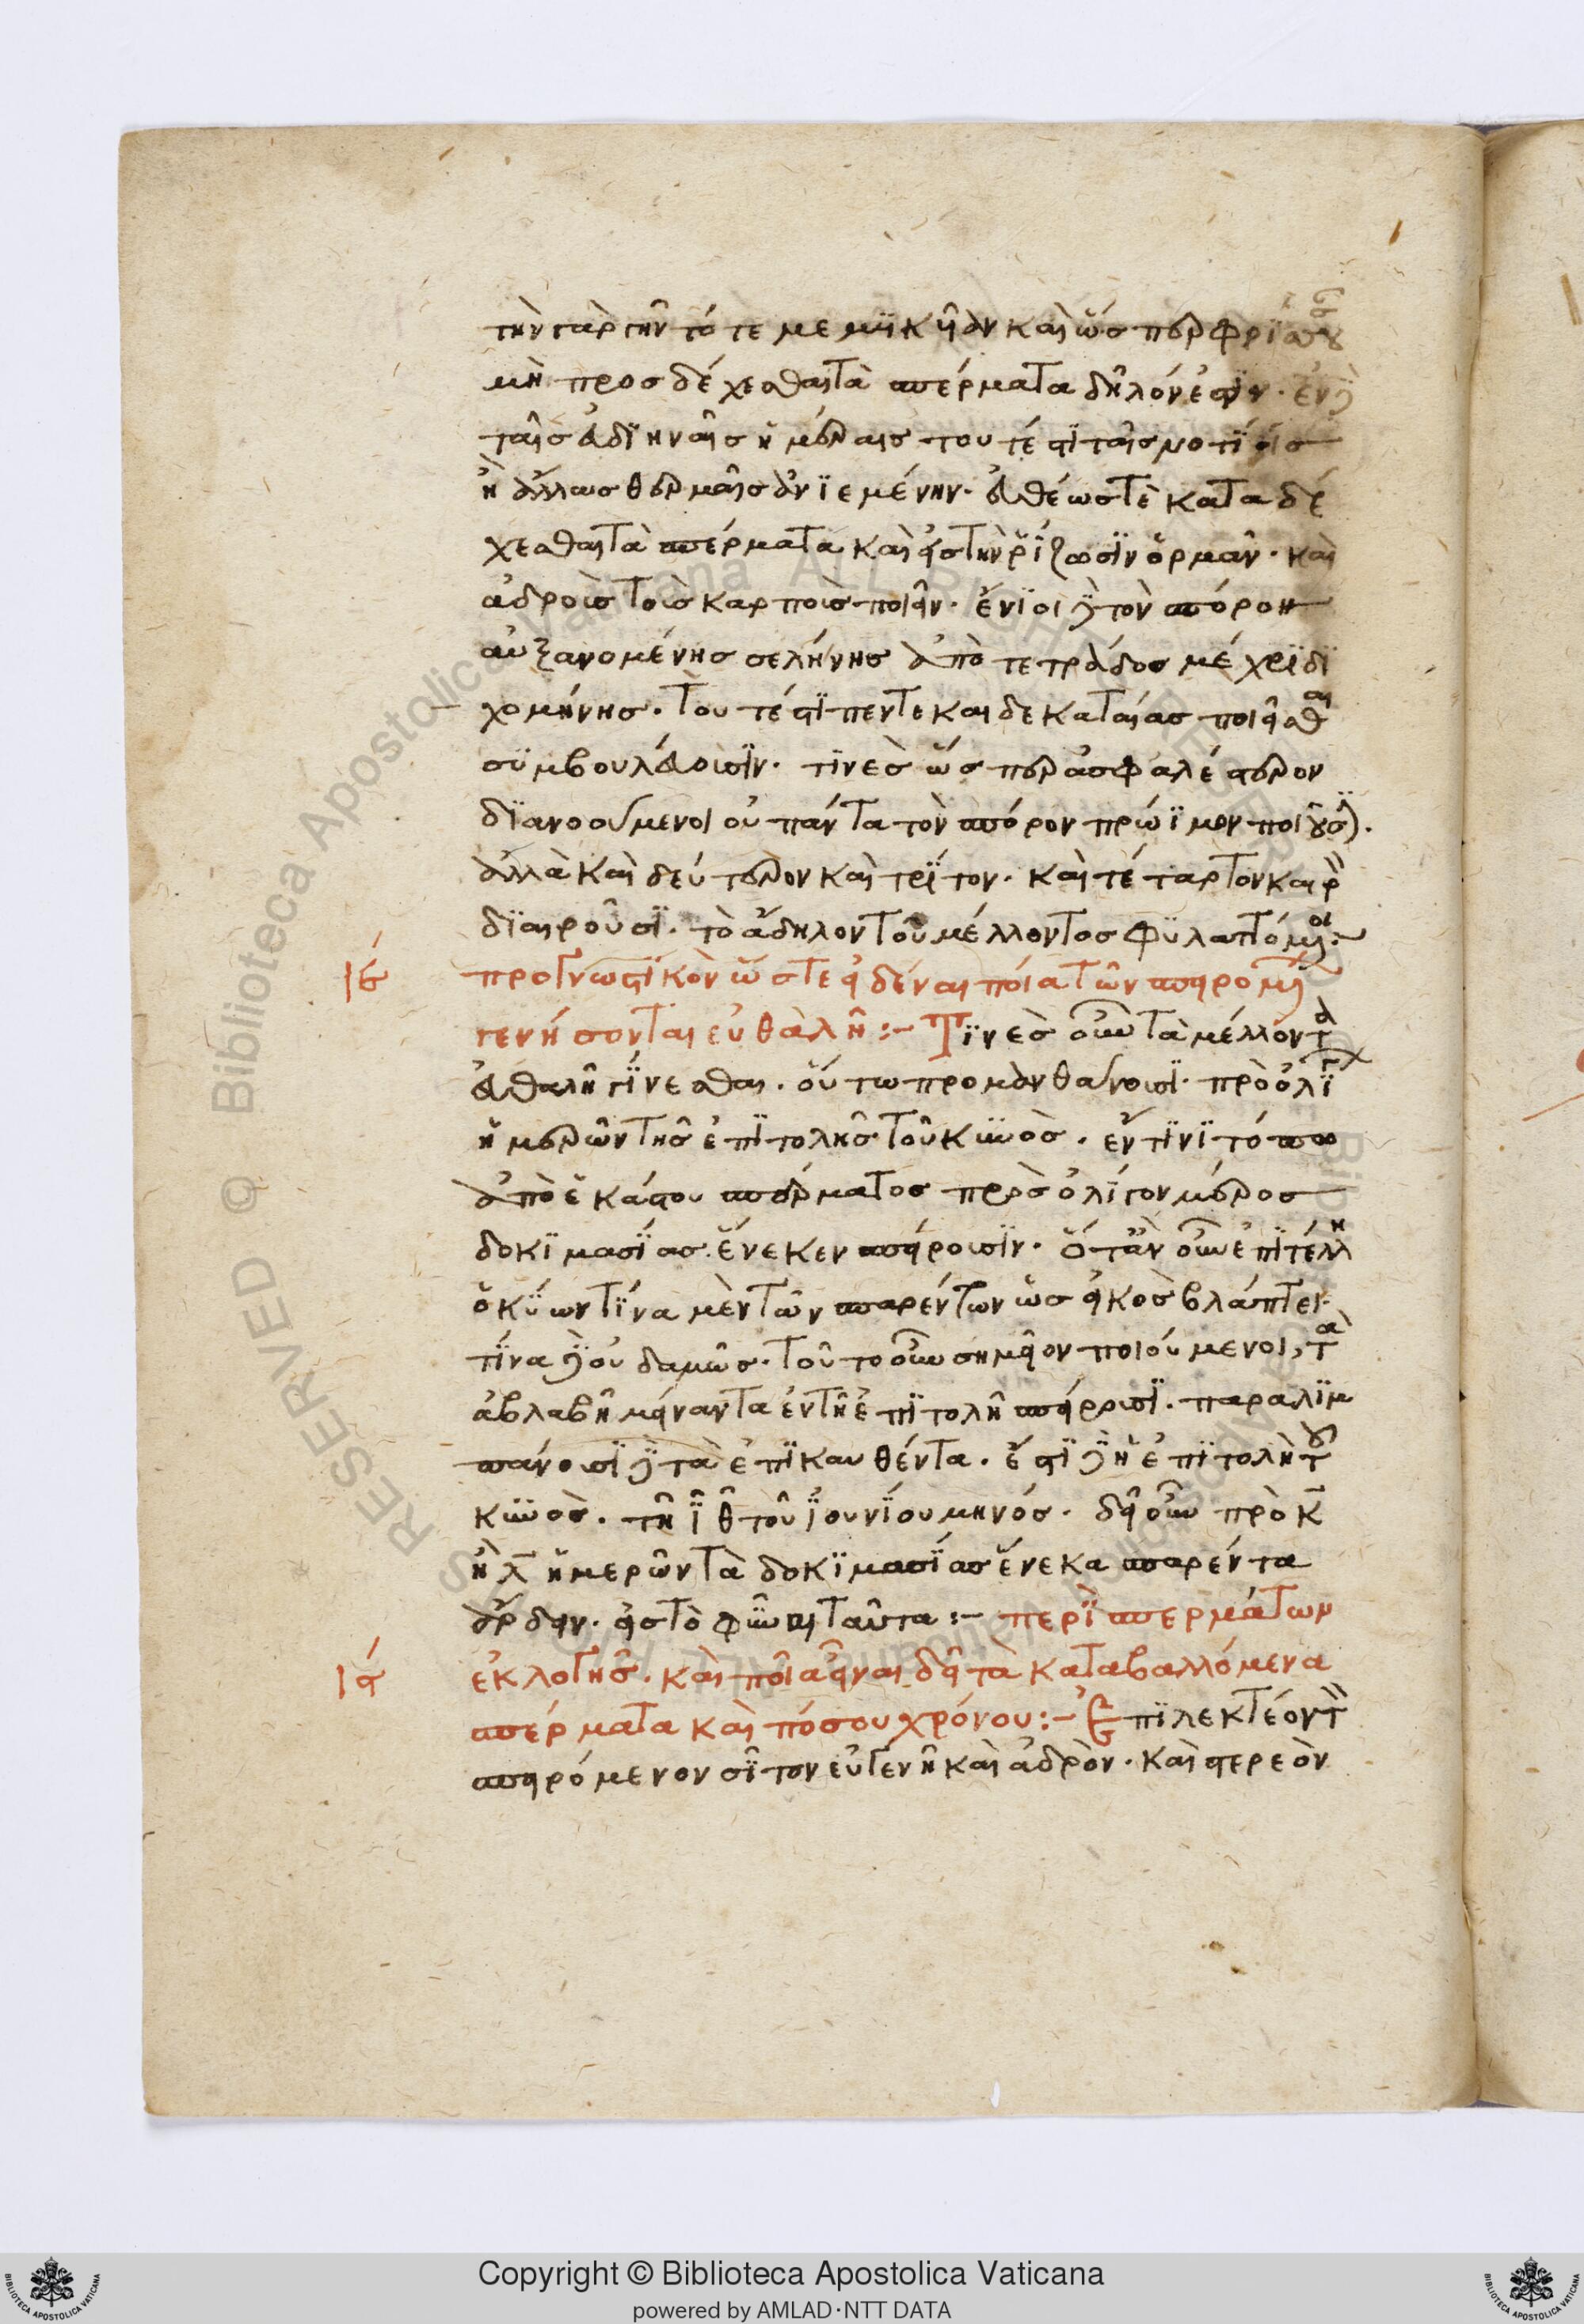 τὴν γὰρ γῆν τότε μεμυκυῖαν καὶ ὥσπερ φρίσσουσαν
μὴ προσδέχεσθαι τὰ σπέρματα δῆλόν ἐστιν. ἐν δὲ
ταῖς εὐδιηναῖς ἡμέραις τουτέστι ταῖς νοτίαις
ἢ ἄλλως θερμαῖς ἀνϊεμένην. εὐθέως τὲ καταδέ
χεσθαι τὰ σπέρματα καὶ εἰς τὴν ῥίζωσιν ὁρμᾶν. καὶ
ἁδροὺς τοὺς καρποὺς ποιεῖν. ἔνϊοι δὲ τὸν σπόρον
αὐξανομένης σελήνης ἀπὸ τετράδος μέχρϊ δϊ
χομήνης. τουτέστϊ πεντεκαιδεκαταίας ποιεῖσθαι
συμβουλεύουσϊν. τϊνὲς ὥσπερ ἀσφαλέστερον
δϊανοούμενοι οὐ πάντα τὸν σπόρον πρώϊμον ποιοῦσϊ.
ἀλλὰ καὶ δεύτερον καὶ τρίτον. καὶ τέταρτον καιρὸν
δϊαιροῦσϊ. τὸ ἄδηλον τοῦ μέλλοντος φϋλαττόμενοι:~
ιε προγνωστϊκὸν ὥστε εἰδέναι ποία τῶν σπειρομένων
γενήσονται εὐθαλῆ :- Τϊνὲς οὖν τὰ μέλλοντα
εὐθαλῆ γίνεσθαι. οὕτω προμανθάνουσϊ. πρὸ ὀλίγων
ἡμερῶν τῆς ἐπϊτολῆς τοῦ κϋνὸς. ἔν τϊνϊ τόπω
ἀπὸ ἑκάστου σπέρματος πρὸς ὀλίγον μέρος
δοκϊμασίας ἕνεκεν σπείρουσϊν. ὅταν οὖν ἐπϊτέλλη
ὁ κύων τίνα μὲν τῶν σπαρέντων ὡς εἰκὸς βλάπτει.
τίνα δὲ οὐδαμῶς. τοῦτο οὖν σημεῖον ποιούμενοι, τὰ
ἀβλαβῆ μείναντα ἐν τῆ ἐπϊτολῆ σπείρουσϊ. παραλϊμ
πάνουσϊ δὲ τὰ ἐπϊκαυθέντα. ἔστϊ δὲ ἡ ἐπϊτολὴ τοῦ
κϋνὸς. τῆ ιθ τοῦ ϊουνίου μηνός. δεῖ οὖν πρὸ κ
ἢ λ ἡμερῶν τὰ δοκϊμασίας ἕνεκα σπαρέντα
ἄρδειν. εἰς τὸ φῦναι ταῦτα :- περὶ σπερμάτων
ις ἐκλογῆς. καὶ ποῖα εἶναι δεῖ τὰ καταβαλλόμενα
σπέρματα καὶ πόσου χρόνου :- Ἐπϊλεκτέον τὸν
σπειρόμενον σῖτον εὐγενῆ καὶ ἁδρὸν. καὶ στερεὸν
Copyright © Biblioteca Apostolica Vaticana
powered by AMLAD·NTT DATA